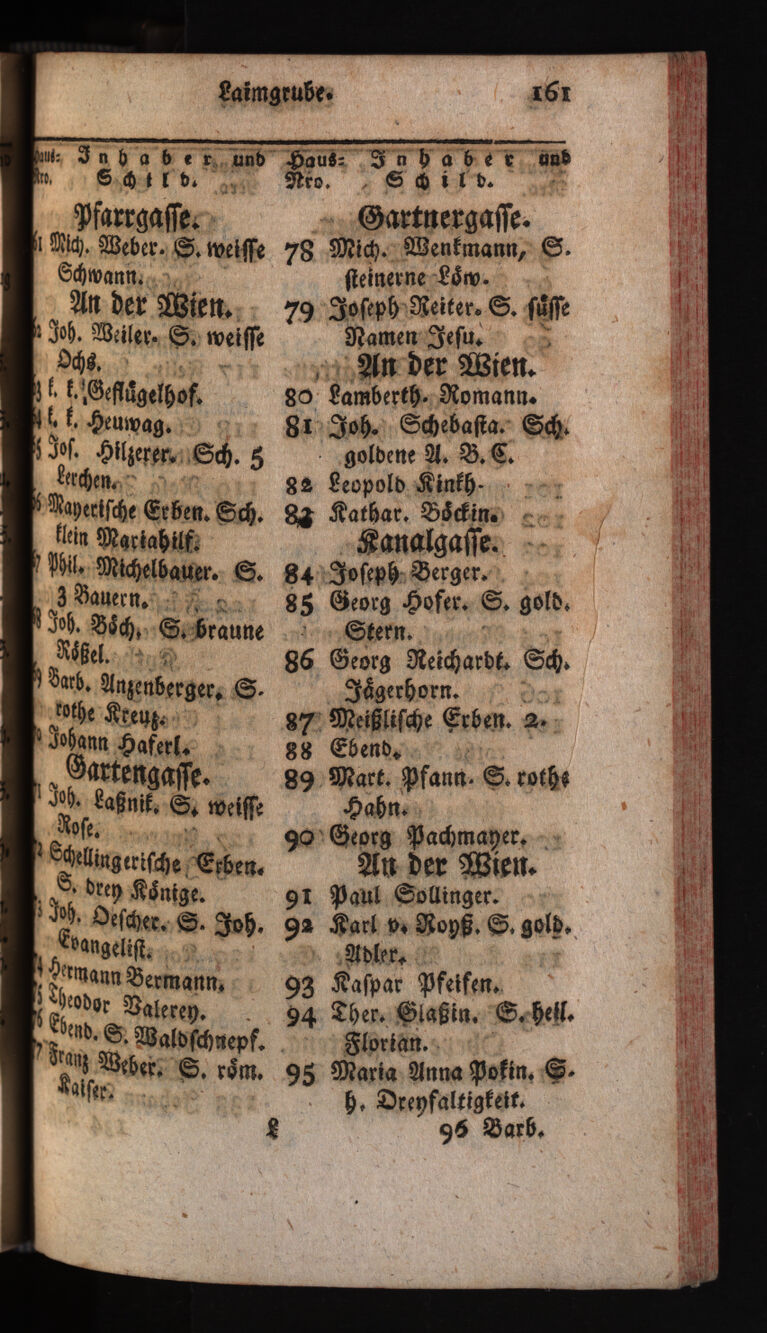 Laimgrube. 161
Inhaber und
Schild.
Pfarrgasse.
Mich. Weber. S. weisse
Schwann.
An der Wien.
Joh. Weiler. S. weisse
Ochs.
k. k. Geflügelhof.
k. k. Heuwag.
Jos. Hilzerer. Sch. 5
Lerchen.
Mayerische Erben. Sch.
klein Mariahilf.
Phil. Michelbauer. S.
3 Bauern.
Joh. Böch. S. braune
Rößel.
Barb. Anzenberger. S.
rothe Kreuz.
Johann Haferl.
Gartengasse.
Joh. Laßnik. S. weisse
Rose.
Schellingerische Erben.
S. drey Könige.
Joh. Oescher. S. Joh.
Evangelist.
Hermann Bermann.
Theodor Valerey.
Ebend. S. Waldschnepf.
Franz Weber. S. röm.
Kaiser.
L
Haus= Inhaber und
Nro. Schild.
Gartnergasse.
78 Mich. Wenkmann, S.
steinerne Löw.
79 Joseph Reiter. S. süsse
Namen Jesu.
An der Wien.
80 Lamberth. Romann.
81 Joh. Schebasta. Sch.
goldene A. B. C.
82 Leopold Kinkh.
83 Kathar. Böckin.
Kanalgasse.
84 Joseph Berger.
85 Georg Hofer. S. gold.
Stern.
86 Georg Reichardt. Sch.
Jägerhorn.
87 Meißlische Erben. 2.
88 Ebend.
89 Mart. Pfann. S. rothe
Hahn.
90 Georg Pachmayer.
An der Wien.
91 Paul Sollinger.
92 Karl v. Royß. S. gold.
Adler.
93 Kaspar Pfeifen.
94 Ther. Glaßin. S. heil.
Florian.
95 Maria Anna Pokin. S.
h. Dreyfaltigkeit.
96 Barb.